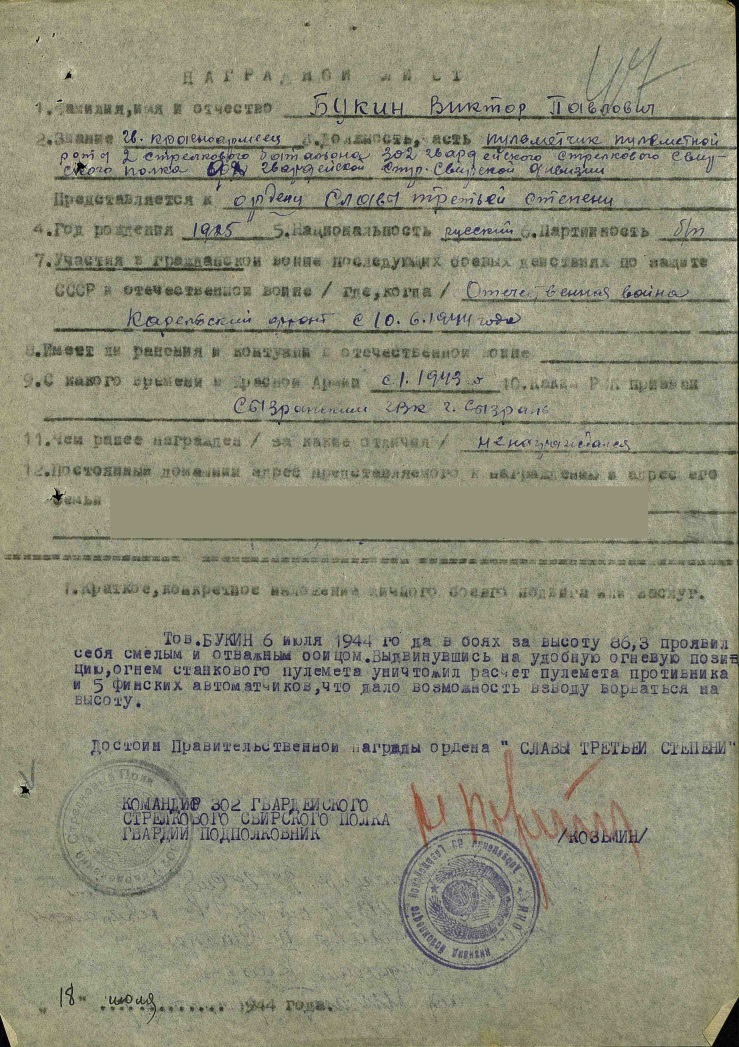 47
НАГРАДНОЙ ЛИСТ
1. Фамилия, имя и отчество Букин Виктор Павлович
2. Звание гв. красноармеец 3. Должность, часть пулеметчик пулеметной
роты 2 стрелкового батальона 302 гвардейского стрелкового Свир-
ского полка гвардейской стр. Свирской дивизии
Представляется к ордену Слава третьей степени
4. Год рождения 1925 5. Национальность русский 6. Партийность б/п
7. Участия в гражданской войне последующих боевых действиях по защите
СССР и отечественной войне / где, когда / Отечественная война
Карельский фронт с 10.6.1944 года
8. Имеет ли ранения и контузии в отечественной войне
9. С какого времени в Красной Армии с 1.1943 г 10. Каким РВК призван
Сызранским ГВК г. Сызрань
11. Чем ранее награжден / за какие отличия / не награждался
12. Постоянный домашний адрес представляемого к награждению и адрес его
семьи
1. Краткое, конкретное изложение личного боевого подвига или заслуг.
Тов. БУКИН 6 июля 1944 го да в боях за высоту 86,3 проявил
себя смелым и отважным бойцом. Выдвинувшись на удобную огневую пози
цию, огнем станкового пулемета уничтожил расчет пулемета противника
и 5 финских автоматчиков, что дало возможность взводу ворваться на
высоту.
Достоин Правительственной награды ордена " СЛАВЫ ТРЕТЬЕЙ СТЕПЕНИ"
КОМАНДИР 302 ГВАРДЕЙСКОГО
СТРЕЛКОВОГО СВИРСКОГО ПОЛКА
ГВАРДИИ ПОДПОЛКОВНИК /КОЗЬМИН/
"18" июля 1944 года.